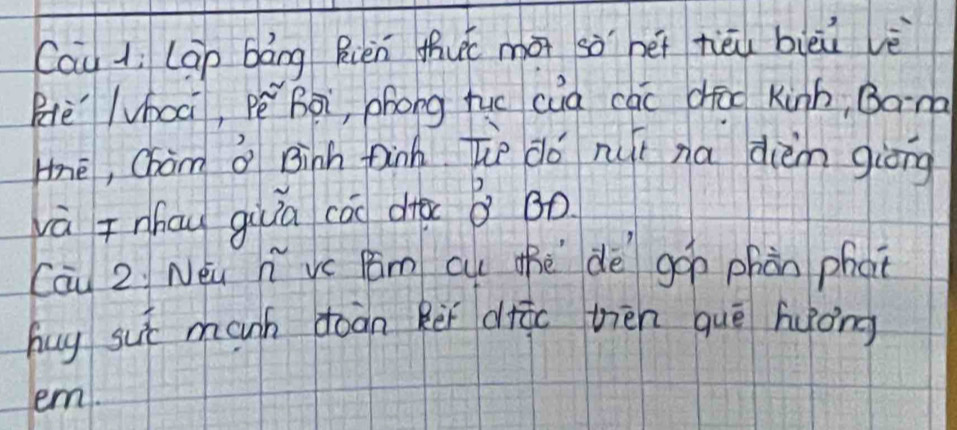 Câu 1: Lập bảng kiến thức một số nét tiêu biểu về
k tế / vhoá, lễ hội, phong tục của các dtộc Kinh, Ba-na
Hrê, Chăm ở Bình Định. Từ đó rút ra điểm giống
và ≠ nhau giữa các dtộc ở BĐ.
Câu 2: Nêu ñ vc làm cụ thể để góp phần phát
huy sức mạnh đoàn kết dtộc trên quê hương
em.